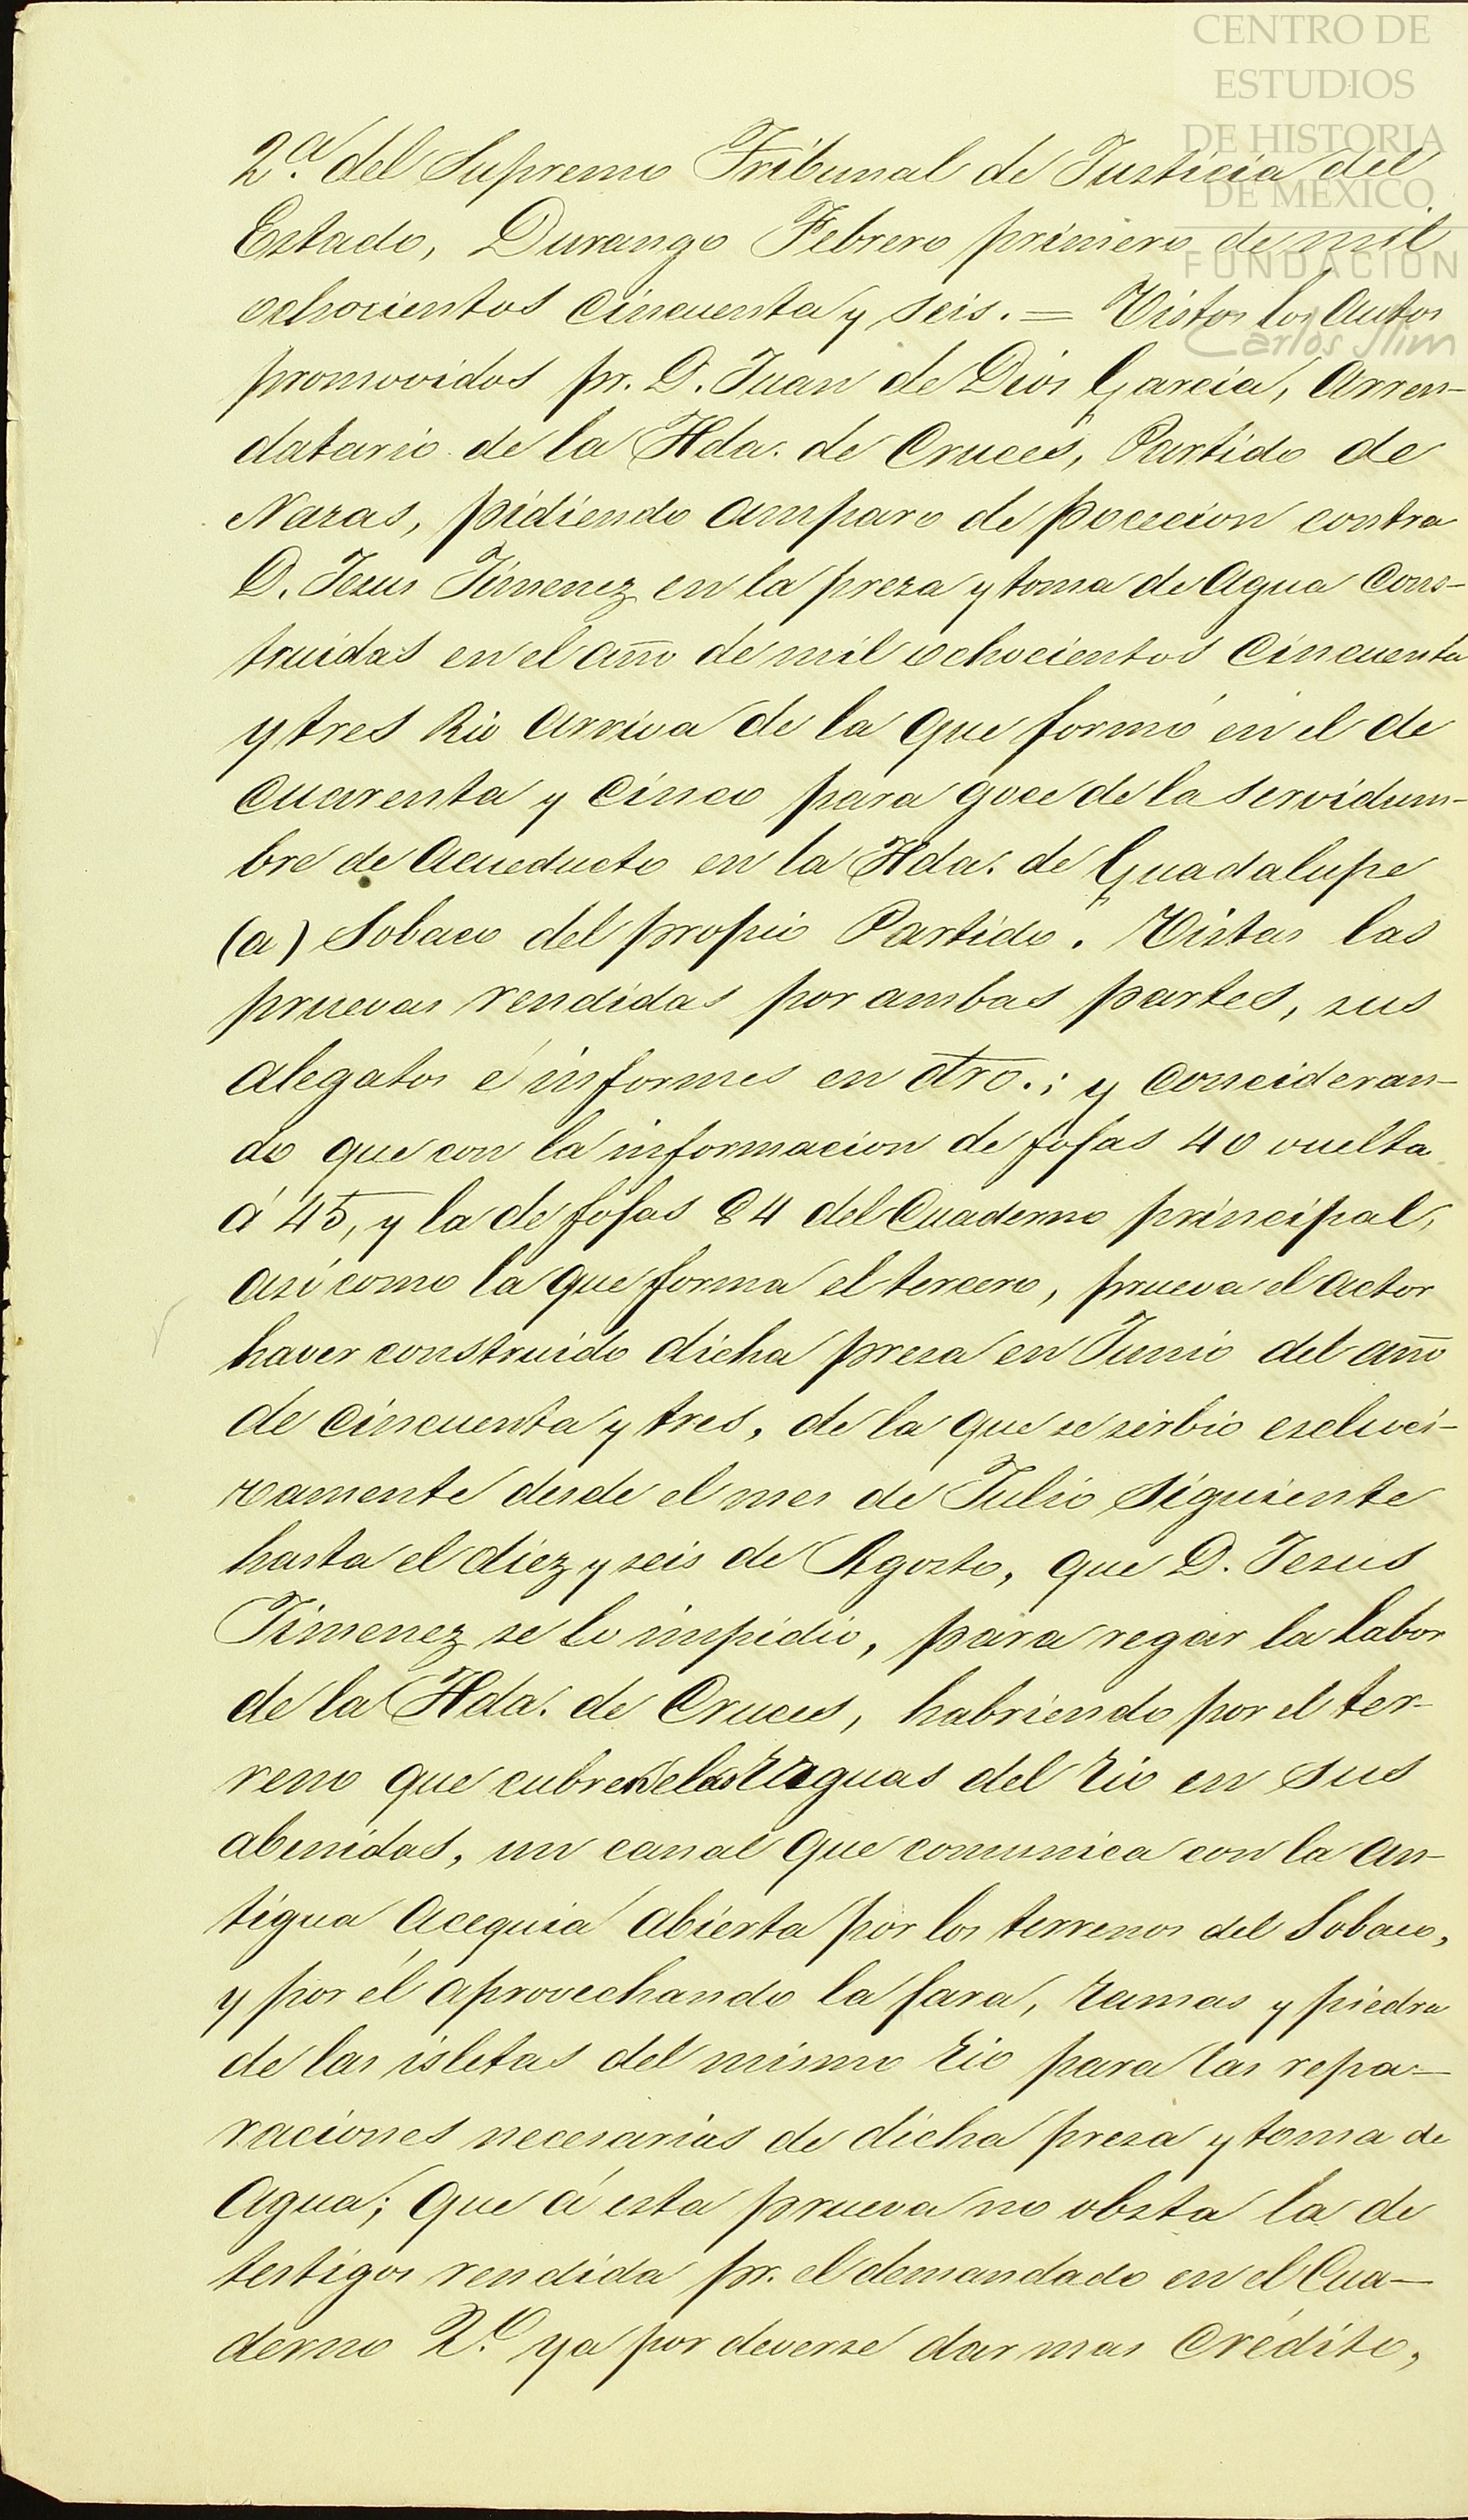 CENTRO DE
ESTUDIOS
DE HISTORIA
DE MEXICO
FUNDACION
Carlos Slim
2.ª del Supremo Tribunal de Justicia del
Estado, Durango Febrero primero de mil
ochocientos cincuenta y seis. = Vistos los autos
promovidos pr. D. Juan de Dios Garcia, Arren-
datario de la Hda. de Cruces, Partido de
Nazas, pidiendo amparo de pocecion contra
D. Jesus Jimenez en la preza y toma de Agua Cons-
truidas en el año de mil ochocientos cincuenta
y tres Rio arriva de la que formó en el de
cuarenta y cinco para goce de la servidum-
bre de acueducto en la Hda. de Guadalupe
(a) Sobaco del propio Partido. Vistas las
pruevas rendidas por ambas partes, sus
alegatos é informes en dro.; y concideran-
do que con la informacion de fojas 40 vuelta
á 45, y la de fojas 84 del Cuaderno principal,
asi como la que forma el tercero, prueva el actor
haver construido dicha presa en Junio del año
de cincuenta y tres, de la que se sirbio escluci-
vamente desde el mes de Julio siguiente
hasta el diez y seis de Agosto, que D. Jesus
Jimenez se lo impidio, para regar la labor
de la Hda. de Cruces, habriendo por el ter-
reno que cubren las aguas del rio en sus
abenidas, un canal que comunica con la an-
tigua acequia abierta por los terrenos del Sobaco,
y por él aprovechando la fara, ramas y piedra
de las isletas del mismo rio para las repa-
raciones necesarias de dicha presa y toma de
Agua; que á esta prueva no obsta la de
testigos rendida pr. el demandado en el Cua-
derno 2.º ya por deverse dar mas crédito,